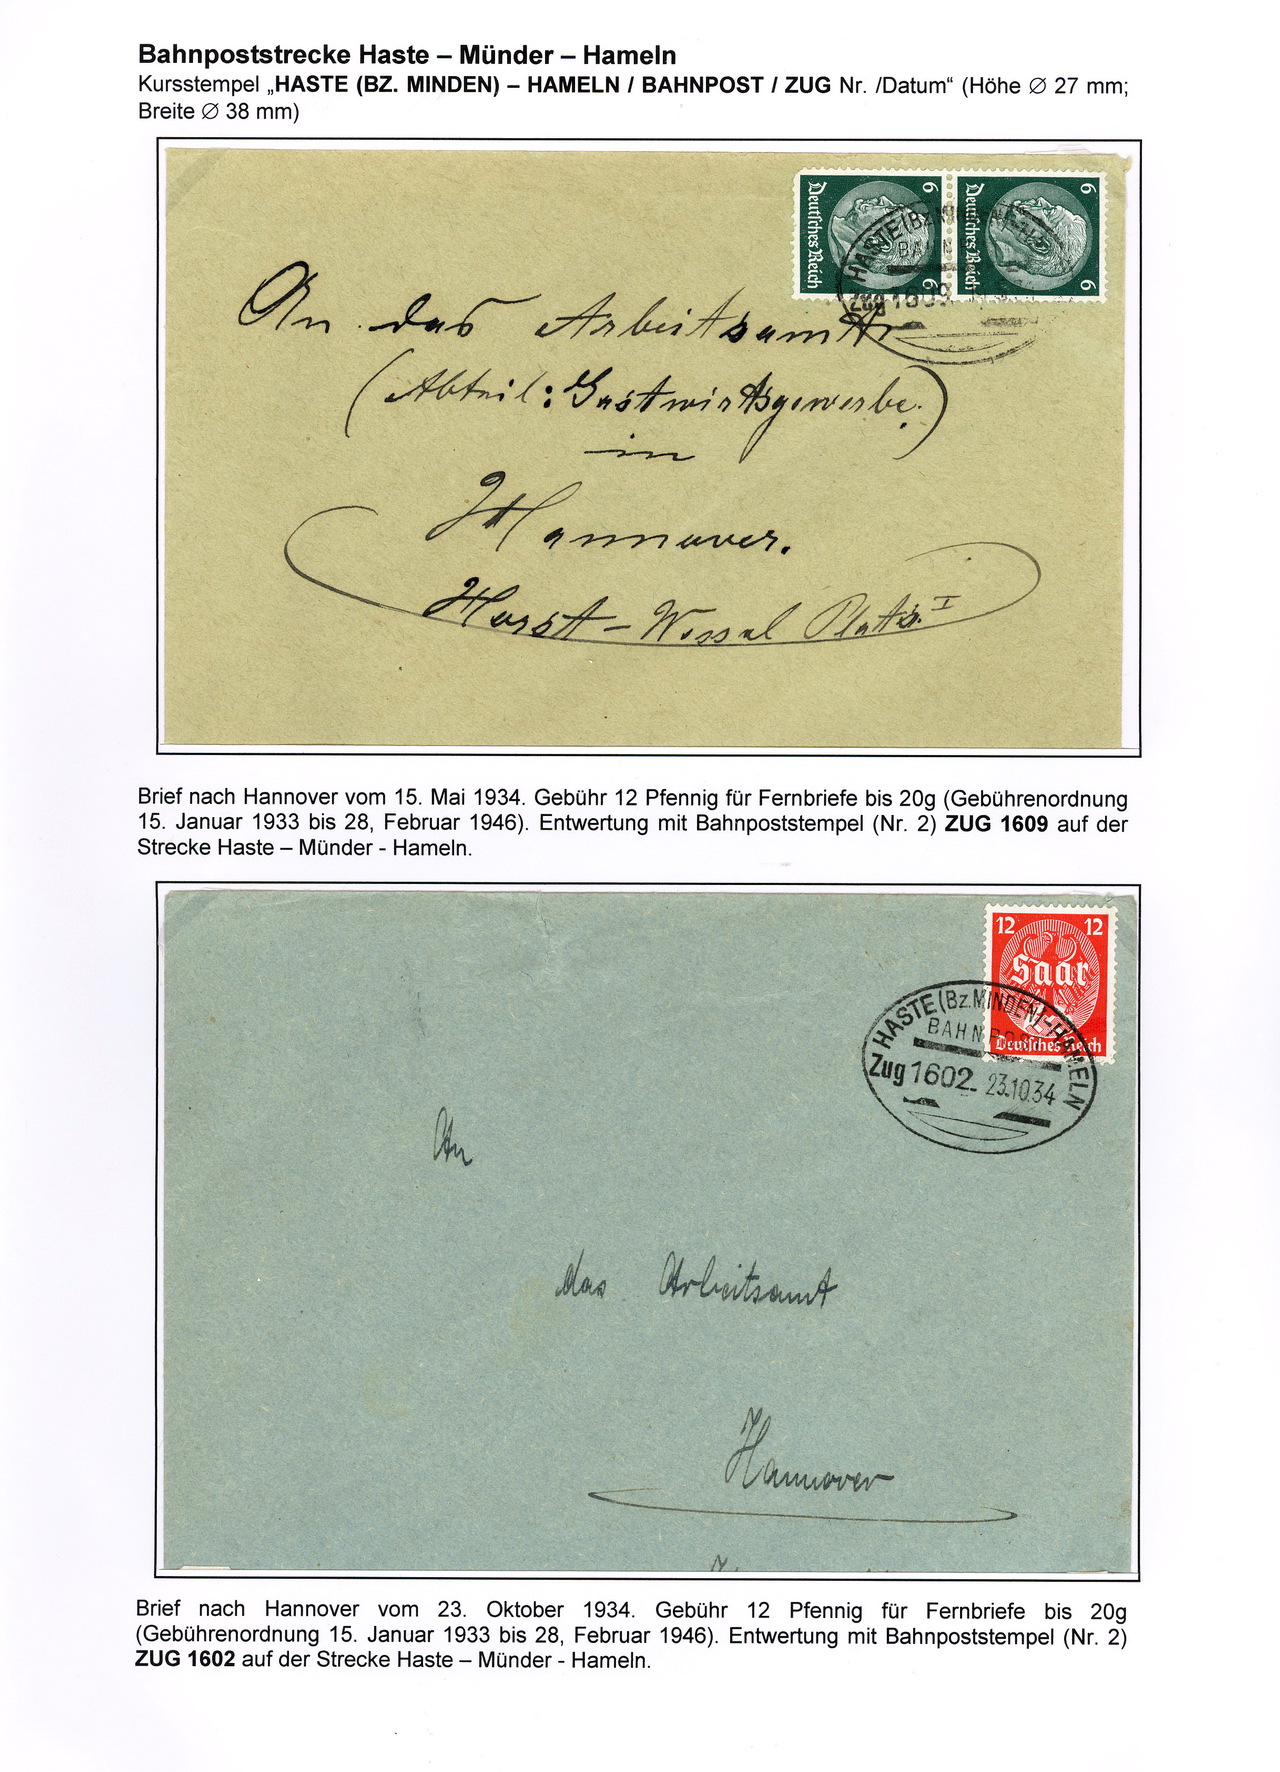 Bahnpoststrecke Haste – Münder – Hameln
Kursstempel „HASTE (BZ. MINDEN) – HAMELN / BAHNPOST / ZUG Nr. /Datum“ (Höhe ∅ 27 mm;
Breite ∅ 38 mm)
6 6
Deutsches Reich
6 6
Deutsches Reich
HASTE (Bz. MINDEN)
BAHN
Zug 1609
An das Arbeitsamt
(Abteil: Gastwirtsgewerbe.)
in
Hannover.
Horst-Wessel Platz I
Brief nach Hannover vom 15. Mai 1934. Gebühr 12 Pfennig für Fernbriefe bis 20g (Gebührenordnung
15. Januar 1933 bis 28, Februar 1946). Entwertung mit Bahnpoststempel (Nr. 2) ZUG 1609 auf der
Strecke Haste – Münder - Hameln.
12 12
Saar
Deutsches Reich
HASTE (Bz. MINDEN)-HAMELN
BAHNPOST
Zug 1602 23.10.34
An
das Arbeitsamt
Hannover
Brief nach Hannover vom 23. Oktober 1934. Gebühr 12 Pfennig für Fernbriefe bis 20g
(Gebührenordnung 15. Januar 1933 bis 28, Februar 1946). Entwertung mit Bahnpoststempel (Nr. 2)
ZUG 1602 auf der Strecke Haste – Münder - Hameln.